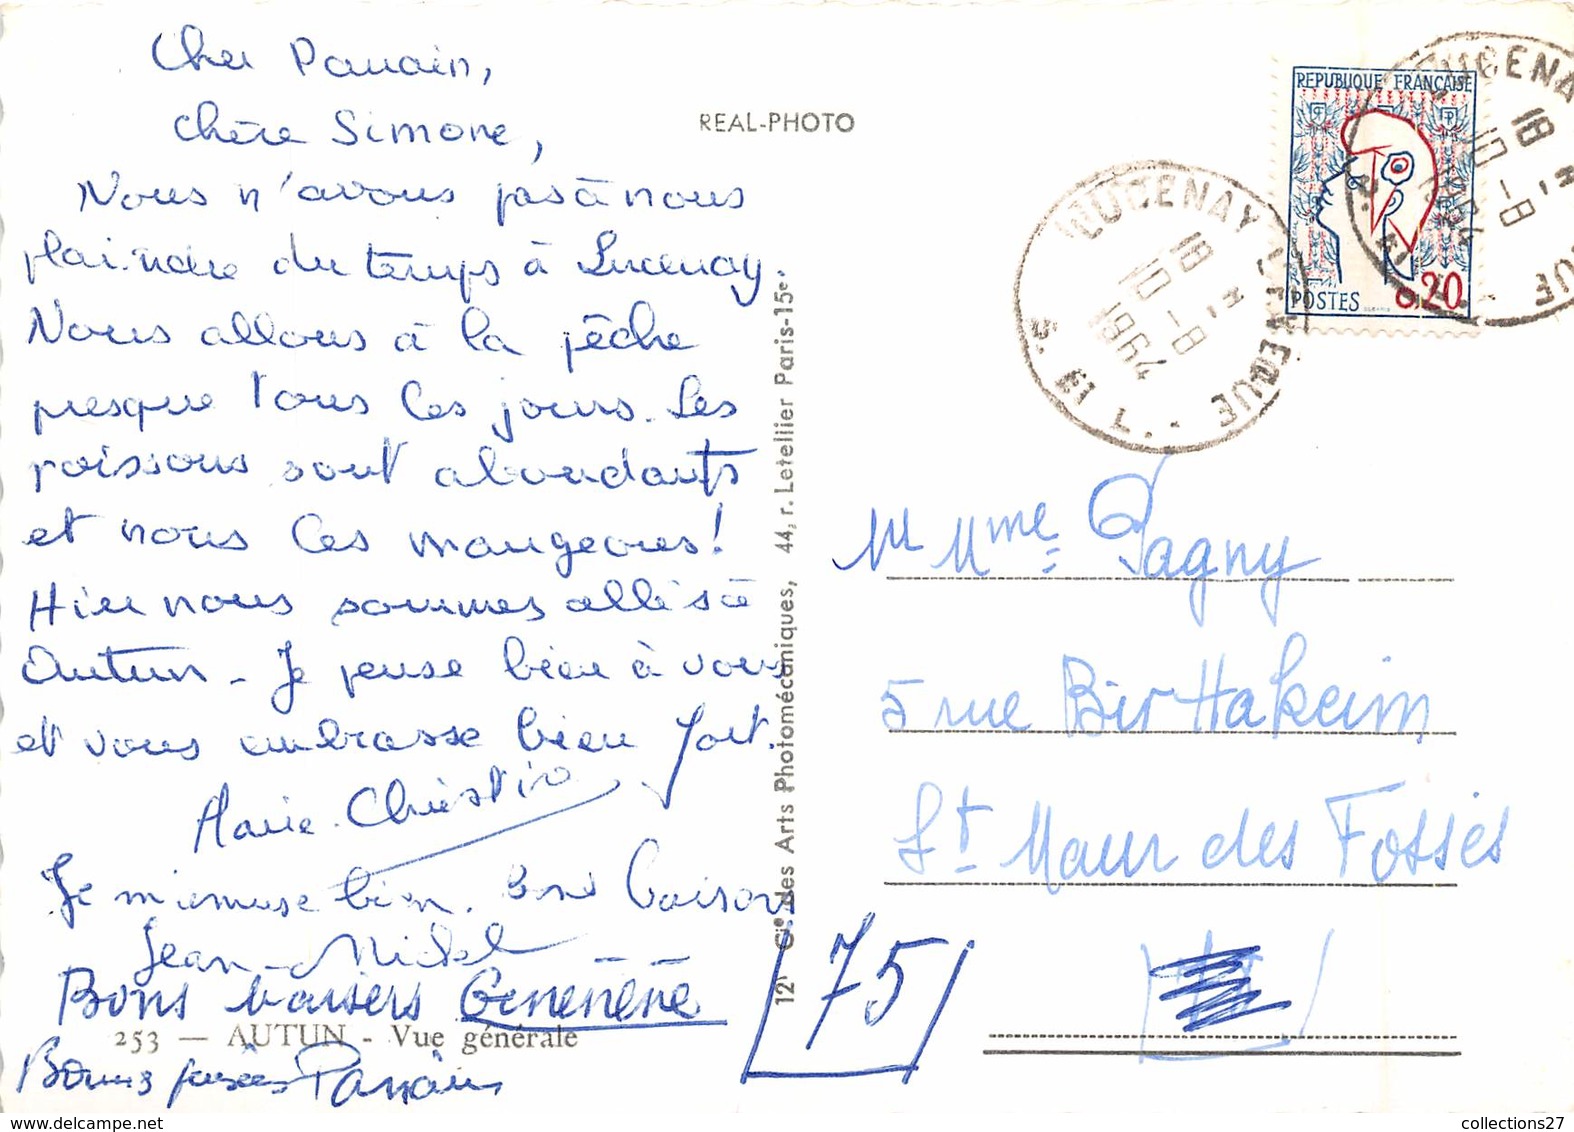 Cher Parrain,
chère Simone,
Nous n'avons pas à nous
plaindre du temps à Lucenay.
Nous allons à la pêche
presque tous les jours. Les
poissons sont abondants
et nous les mangeons!
Hier nous sommes allés à
Autun - Je pense bien à vous
et vous embrasse bien fort.
Marie-Christine
Je m'amuse bien. Bons baisers
Jean-Michel
Bons baisers Geneviève
253 — AUTUN - Vue générale
Bonnes pensées
REAL-PHOTO
Cie des Arts Photomécaniques, 44, r. Letellier Paris-15e
REPUBLIQUE FRANÇAISE
POSTES
0,20
LUCENAY L'EVEQUE
18 H
10 - 8
1964
S. ET L.
M Mme Pagny
5 rue Bir Hakeim
St Maur des Fossés
75
collections27